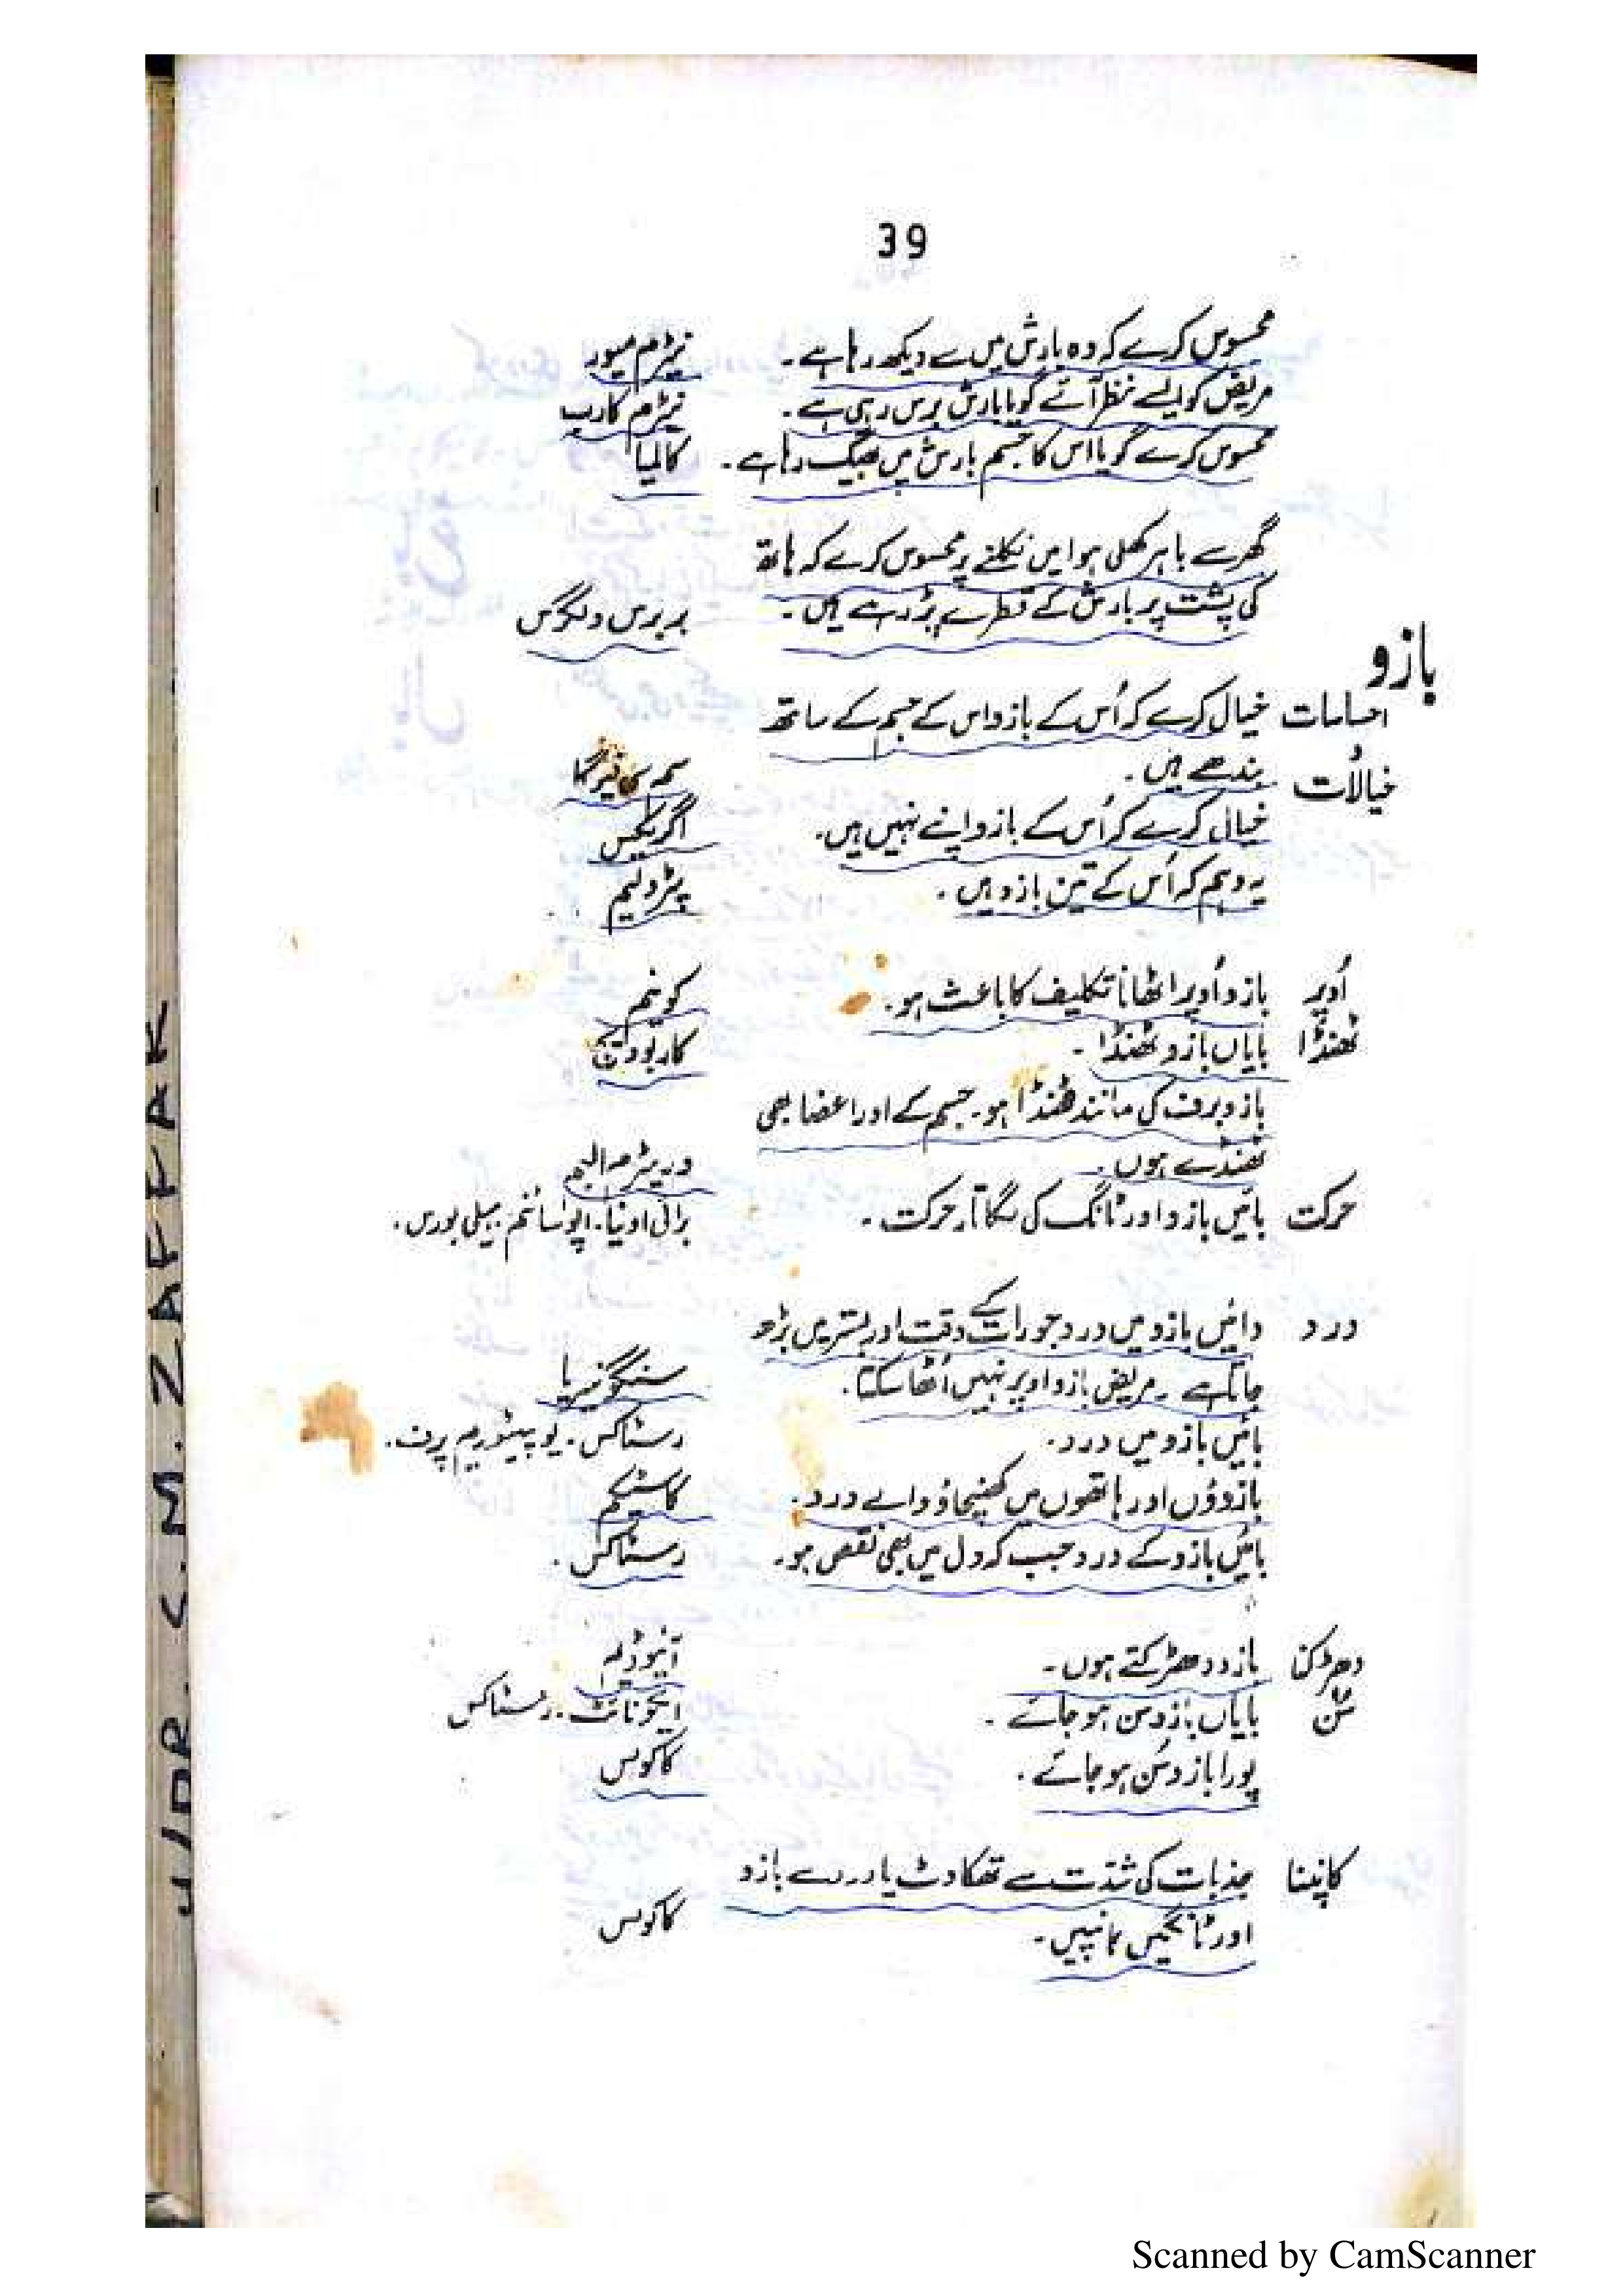 39
محسوس کرے کہ وہ بارش میں سے دیکھ رہا ہے۔ نیٹرم میور
مریض کو ایسے نظر آئے گویا بارش برس رہی ہے۔ نیٹرم کارب
محسوس کرے گویا اس کا جسم بارش میں بھیگ رہا ہے۔ کالمیا
گھر سے باہر کھلی ہوا میں نکلنے پر محسوس کرے کہ ہاتھ
کی پشت پر بارش کے قطرے پڑ رہے ہیں۔ بربرس ولگرس
بازو
احساسات خیال کرے کہ اُس کے بازو اس کے جسم کے ساتھ
خیالات بندھے ہیں۔
خیال کرے کہ اُس کے بازو اپنے نہیں ہیں۔ اگریکس
یہ وہم کہ اُس کے تین بازو ہیں۔ پٹرولیم
اُوپر بازو اُوپر اٹھانا تکلیف کا باعث ہو۔ کونیم
ٹھنڈا بایاں بازو ٹھنڈا۔ کاربوویج
بازو برف کی مانند ٹھنڈا ہو۔ جسم کے اور اعضا بھی
ٹھنڈے ہوں۔ وریٹرم البم
حرکت بائیں بازو اور ٹانگ کی لگاتار حرکت۔ برائی اونیا۔ اپوسائنم۔ ہیلی بورس۔
درد دائیں بازو میں درد جو رات کے وقت اور بستر میں بڑھ
جاتا ہے۔ مریض بازو اوپر نہیں اُٹھا سکتا۔ سنگونیریا
بائیں بازو میں درد۔ رسٹاکس۔ یوپیٹوریم پرف۔
بازوؤں اور ہاتھوں میں کھنچاؤ والے درد۔ کاسٹیکم
بائیں بازو کے درد جب کہ دل میں بھی نقص ہو۔ رسٹاکس۔
دھڑکن بازو دھڑکتے ہوں۔ آئیوڈیم
سُن بایاں بازو سن ہو جائے۔ ایکونائٹ۔ رسٹاکس
پورا بازو سُن ہو جائے۔ کاکولس
کانپنا جذبات کی شدّت سے تھکاوٹ یا درد سے بازو
اور ٹانگیں کانپیں۔ کاکولس
H/DR. C.M. ZAFFAR
Scanned by CamScanner